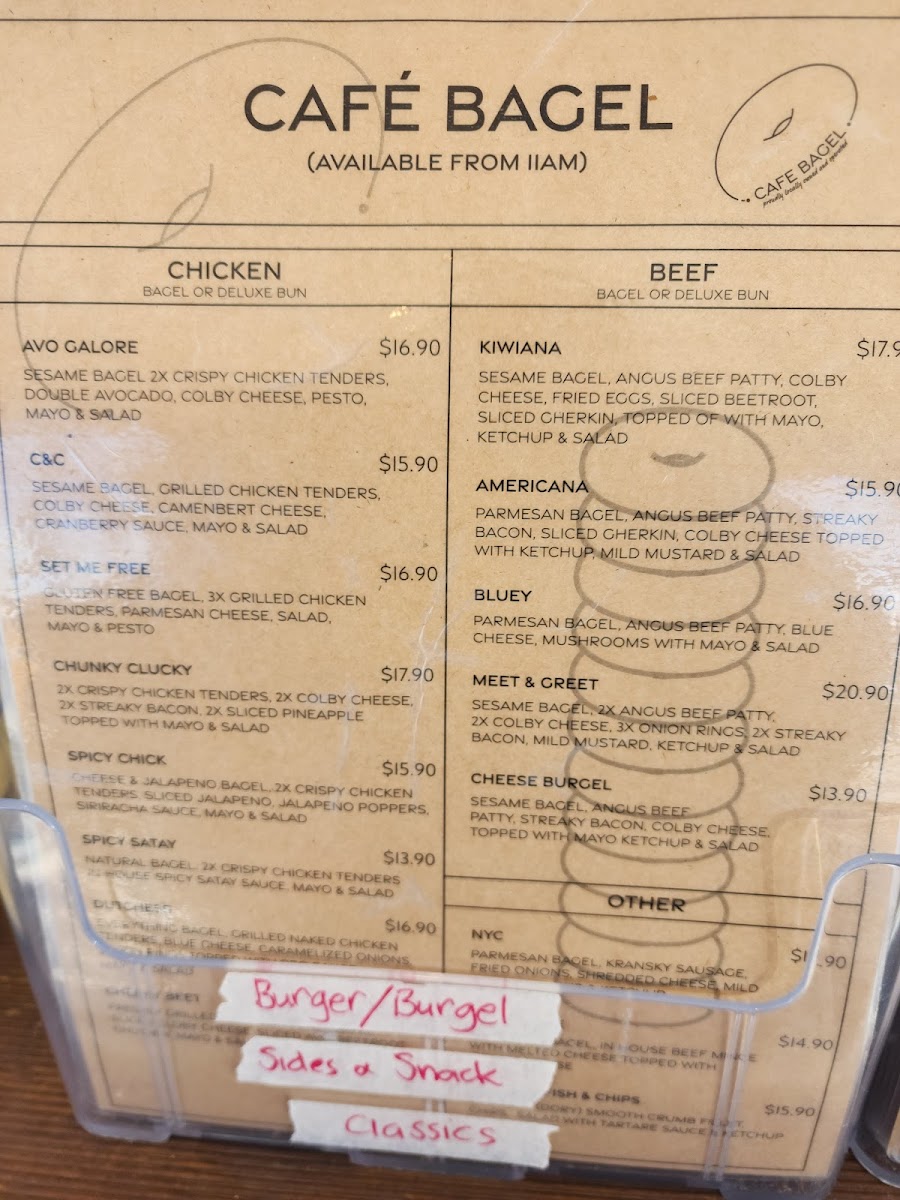 CAFÉ BAGEL
(AVAILABLE FROM 11AM)
CAFE BAGEL
proudly locally owned and operated
CHICKEN
BAGEL OR DELUXE BUN
AVO GALORE $16.90
SESAME BAGEL 2X CRISPY CHICKEN TENDERS,
DOUBLE AVOCADO, COLBY CHEESE, PESTO,
MAYO & SALAD
C&C $15.90
SESAME BAGEL, GRILLED CHICKEN TENDERS,
COLBY CHEESE, CAMENBERT CHEESE,
CRANBERRY SAUCE, MAYO & SALAD
SET ME FREE $16.90
GLUTEN FREE BAGEL, 3X GRILLED CHICKEN
TENDERS, PARMESAN CHEESE, SALAD,
MAYO & PESTO
CHUNKY CLUCKY $17.90
2X CRISPY CHICKEN TENDERS, 2X COLBY CHEESE,
2X STREAKY BACON, 2X SLICED PINEAPPLE
TOPPED WITH MAYO & SALAD
SPICY CHICK $15.90
CHEESE & JALAPENO BAGEL, 2X CRISPY CHICKEN
TENDERS, SLICED JALAPENO, JALAPENO POPPERS,
SIRIRACHA SAUCE, MAYO & SALAD
SPICY SATAY $13.90
NATURAL BAGEL, 2X CRISPY CHICKEN TENDERS
HOUSE SPICY SATAY SAUCE, MAYO & SALAD
$16.90
EVERYTHING BAGEL, GRILLED NAKED CHICKEN
TENDERS, BLUE CHEESE, CARAMELIZED ONIONS,
BEEF
BAGEL OR DELUXE BUN
KIWIANA $17.9
SESAME BAGEL, ANGUS BEEF PATTY, COLBY
CHEESE, FRIED EGGS, SLICED BEETROOT,
SLICED GHERKIN, TOPPED OF WITH MAYO,
KETCHUP & SALAD
AMERICANA $15.90
PARMESAN BAGEL, ANGUS BEEF PATTY, STREAKY
BACON, SLICED GHERKIN, COLBY CHEESE TOPPED
WITH KETCHUP, MILD MUSTARD & SALAD
BLUEY $16.90
PARMESAN BAGEL, ANGUS BEEF PATTY, BLUE
CHEESE, MUSHROOMS WITH MAYO & SALAD
MEET & GREET $20.90
SESAME BAGEL, 2X ANGUS BEEF PATTY,
2X COLBY CHEESE, 3X ONION RINGS, 2X STREAKY
BACON, MILD MUSTARD, KETCHUP & SALAD
CHEESE BURGEL $13.90
SESAME BAGEL, ANGUS BEEF
PATTY, STREAKY BACON, COLBY CHEESE,
TOPPED WITH MAYO KETCHUP & SALAD
OTHER
NYC
PARMESAN BAGEL, KRANSKY SAUSAGE,
FRIED ONIONS, SHREDDED CHEESE, MILD
$14.90
IN HOUSE BEEF MINCE
WITH MELTED CHEESE TOPPED WITH
& CHIPS $15.90
(DORY) SMOOTH CRUMB FILLET,
SALAD WITH TARTARE SAUCE & KETCHUP
Burger/Burgel
Sides & Snack
Classics